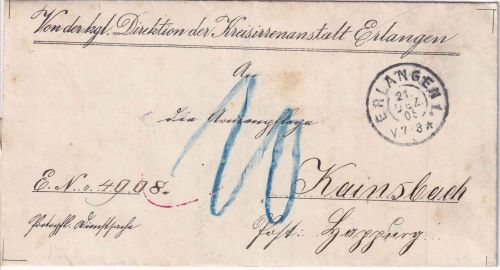 Von der kgl. Direktion der Kreisirrenanstalt Erlangen
An
die Armenpflege
Kainsbach
Post: Happurg
E. N. 4998.
Portopfl. Dienstsache
20
ERLANGEN 1.
21.
DEZ.
05
V 7-8